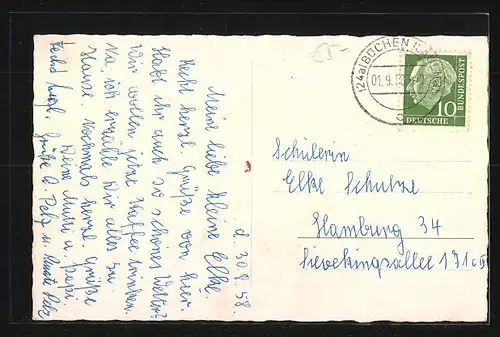 d. 30.8.58.
Meine liebe kleine Elke.
Recht herzl. Grüße von hier.
Habt ihr auch so schönes Wetter?
Wir wollen jetzt Kaffee trinken.
Na, ich erzähle Dir alles zu
Hause. Nochmals herzl. Grüße
Deine Mutti u. Papi.
Grüße A. Pelz u.
5-
(24a) BÜCHEN
01.9.
DEUTSCHE
BUNDESPOST
10
Schülerin
Elke Schulze
Hamburg 34
Sievekingsallee 191 c